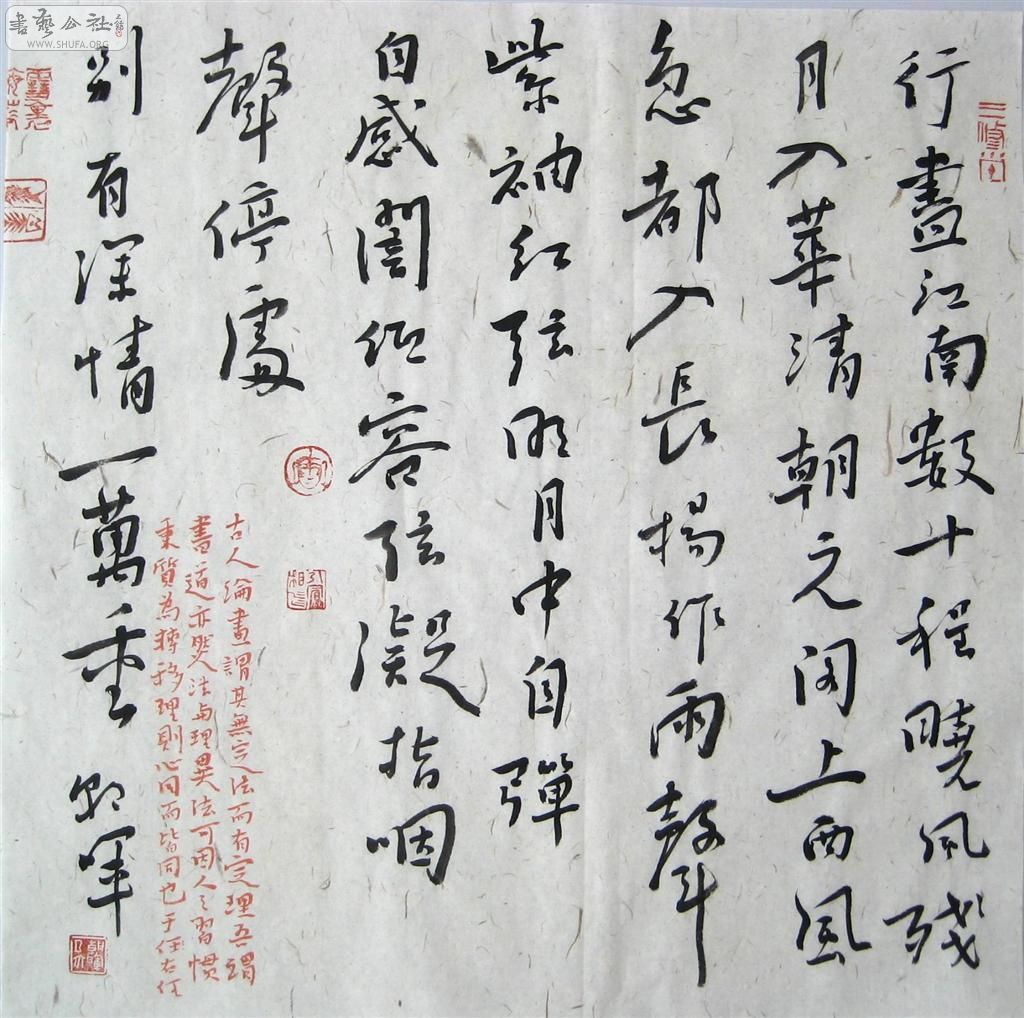 書藝公社
WWW.SHUFA.ORG
行盡江南數十程曉風殘
月入華清朝元閣上西風
急都入長楊作雨聲
紫袖紅弦明月中自彈
自感闇低容弦凝指咽
聲停處
別有深情一萬重
古人論畫謂其無定法而有定理吾謂
書道亦然法与理異法可因人之習慣
秉質為轉移理則心同而皆同也于任右任